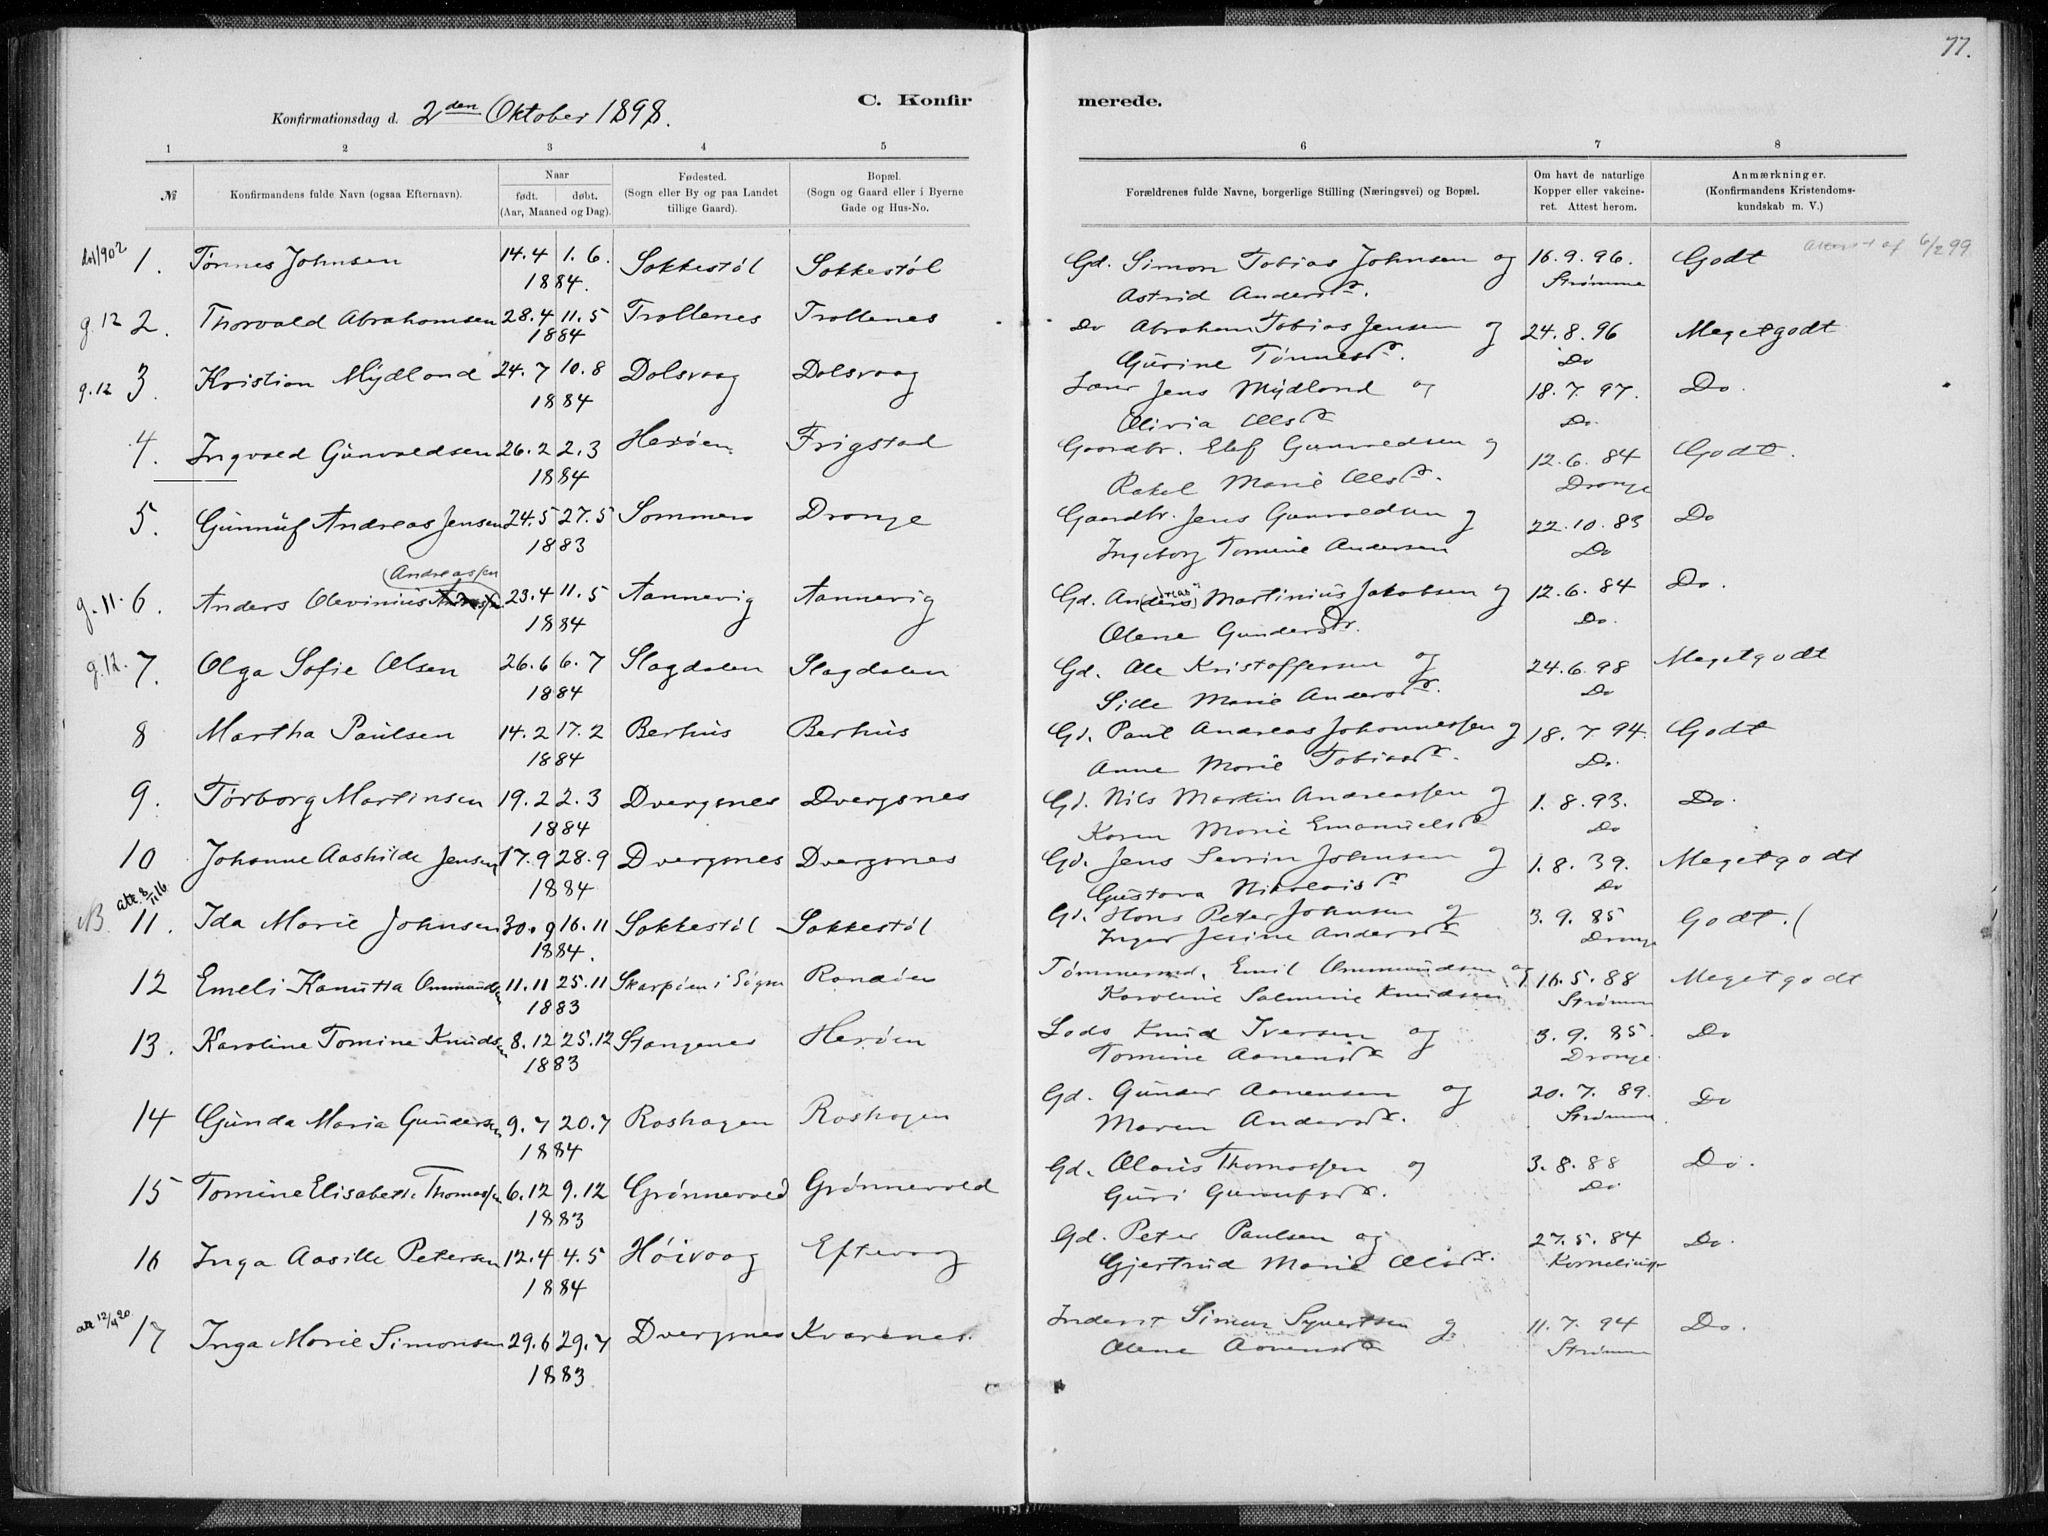 77.
C. Konfirmerede.
Konfirmationsdag d. 2den Oktober 1898.
1 2 3 4 5 6 7 8
№ Konfirmandens fulde Navn (ogsaa Efternavn). Naar født. døbt. (Aar, Maaned og Dag). Fødested. (Sogn eller By og paa Landet tillige Gaard). Bopæl. (Sogn og Gaard eller i Byerne Gade og Hus-No. Forældrenes fulde Navne, borgerlige Stilling (Næringsvei) og Bopæl. Om havt de naturlige Kopper eller vakcineret. Attest herom. Anmærkninger. (Konfirmandens Kristendomskundskab m. V.)
1. Tønnes Johnsen 14.4 1.6. Sokkestøl Sokkestøl Gd. Simon Tobias Johnsen og 16.9.96. Godt 6/2 99
1884. Astrid Andersdr. Strømme
g.12 2. Thorvald Abrahamsen 28.4 11.5 Trollenes Trollenes Do Abraham Tobias Jensen og 24.8.96 Megetgodt
1884 Gurine Tønnesdr. Do
g.12 3. Kristian Mydland 24.7 10.8 Dolsvaag Dolsvaag Lærer Jens Mydland og 18.7.97. Do.
1884 Olivia Olsdr Do.
4. Ingvald Gunvaldsen 26.2 2.3 Herøen Frigstad Gaardbr. Elef Gunvaldsen og 12.6.84 Godt.
1884 Rakel Marie Olsdr. Drange
5. Gunnuf Andreas Jensen 24.5 27.5 Sommero Drange Gaardbr. Jens Gunvaldsen og 22.10.83 Do
1883 Ingeborg Tomine Andersen Do
(Andreassen
g.11. 6. Anders Olevinius 23.4 11.5 Aannevig Aannevig Gd. Anders (reas) Martinius Jakobsen og 12.6.84 Do.
1884 Olene Gundersdr. Do.
g.12. 7. Olga Sofie Olsen 26.6 6.7 Slagdalen Slagdalen Gd. Ole Kristoffersen og 24.6.98 Megetgodt
1884 Sille Marie Andersdr. Do
8 Martha Paulsen 14.2 17.2 Berhus Berhus Gd. Paul Andreas Johannessen og 18.7.94. Godt
1884 Anne Marie Tobiasdr. Do.
9. Torborg Martinsen 19.2 2.3 Dvergsnes Dvergsnes Gd. Nils Martin Andreassen og 1.8.93. Do.
1884 Karen Marie Emanuelsdr Do
10 Johanne Aashilde Jensen 17.9 28.9 Dvergsnes Dvergsnes Gd. Jens Severin Johnsen og 1.8.39. Megetgodt
1884 Gustava Nikolaisdr Do
att. 8/11 16
NB. 11. Ida Marie Johnsen 30.9 16.11 Sokkestøl Sokkestøl Gd. Hans Peter Johnsen og 3.9.85 Godt.(
1884. Inger Jesine Andersdr Drange
12 Emeli Kanutta Ommundsen 11.11 25.11 Skarpøen i Søgne Randøen Tømmermd. Emil Ommundsen og 16.5.88 Megetgodt
1883 Karoline Salmine Knudsen Strømme
13. Karoline Tomine Knudsen 8.12 25.12 Stangenes Herøen Lods Knud Iversen og 3.9.85. Do
1883 Tomine Aanensdr Drange.
14 Gunda Maria Gundersen 9.7 20.7 Roshagen Roshagen Gd. Gunder Aanensen og 20.7.89. Do
1884 Maren Andersdr. Strømme
15 Tomine Elisabeth Thomassen 6.12 9.12 Grønnevold Grønnevold Gd. Olaus Thomassen og 3.8.88 Do.
1883 Guri Gunnufsdr. Do
16 Inga Aasille Petersen 12.4 4.5 Høivaag Eftevaag Gd. Peter Paulsen og 27.5.84 Do.
1884 Gjertrud Marie Olsdr. Kornelius
att 12/4 20
17 Inga Marie Simonsen 29.6 29.7 Dvergsnes Kvarenes. Inderst Simon Syvertsen og 11.7.94 Do.
1883 Olene Aanensdr Strømme